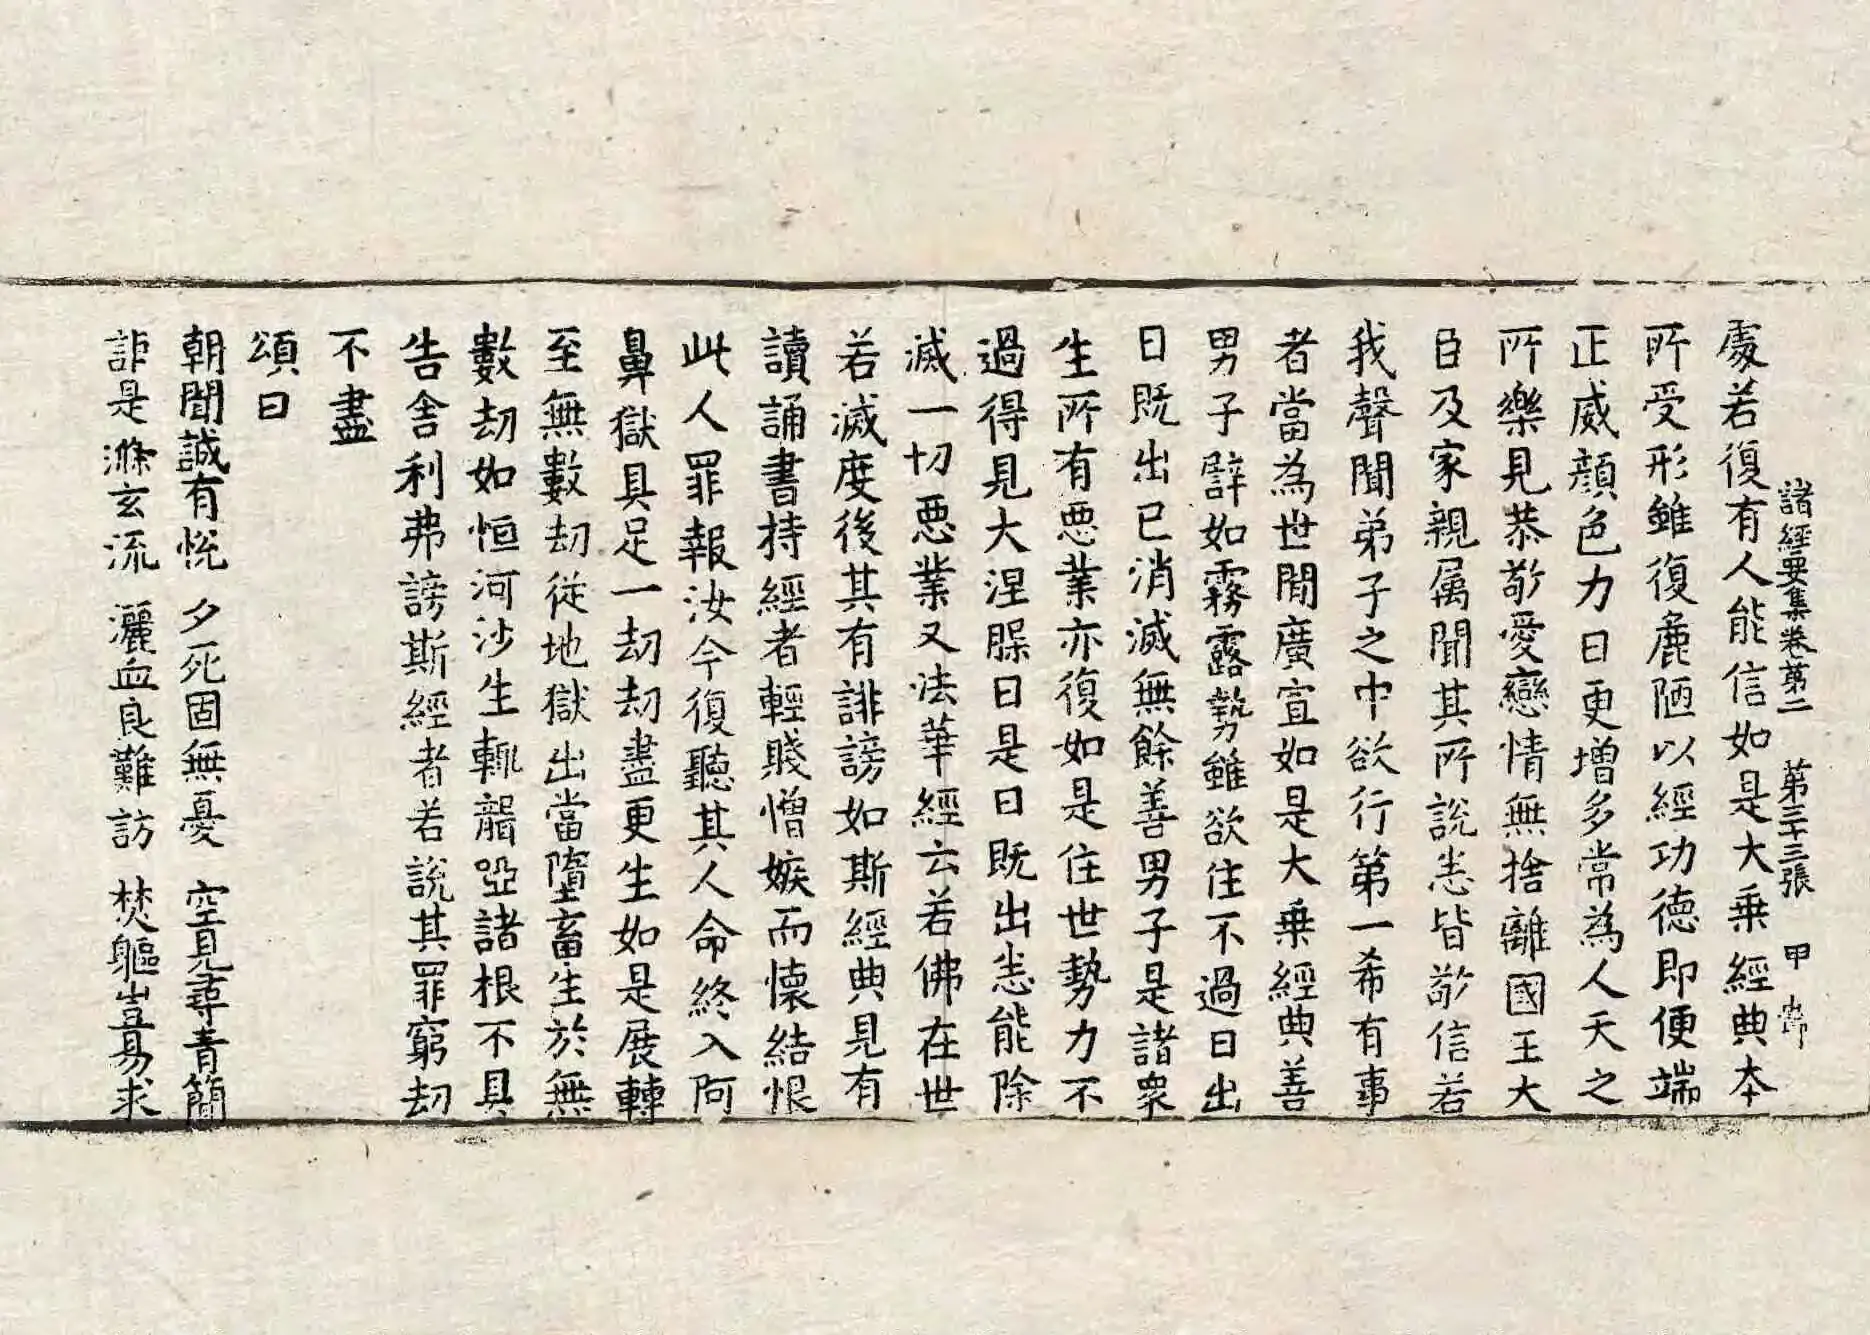 諸經要集卷第二　第三十三張　甲
處若復有人能信如是大乗經典本
所受形雖復麁陋以經功德即便端
正威顔色力日更增多常為人天之
所樂見恭敬愛戀情無捨離國王大
臣及家親属聞其所說悉皆敬信若
我聲聞弟子之中欲行第一希有事
者當為世間廣宣如是大乗經典善
男子譬如霧露勢雖欲住不過日出
日既出已消滅無餘善男子是諸衆
生所有惡業亦復如是住世勢力不
過得見大涅槃日是日既出悉能除
滅一切惡業又法華經云若佛在世
若滅度後其有誹謗如斯經典見有
讀誦書持經者輕賤憎嫉而懷結恨
此人罪報汝今復聽其人命終入阿
鼻獄具足一劫劫盡更生如是展轉
至無數劫從地獄出當墮畜生於無
數劫如恒河沙生輒聾瘂諸根不具
告舍利弗謗斯經者若說其罪窮劫
不盡
頌曰
朝聞誠有悅　夕死固無憂　空見尋青簡
詎是滌玄流　灑血良難訪　焚軀豈易求